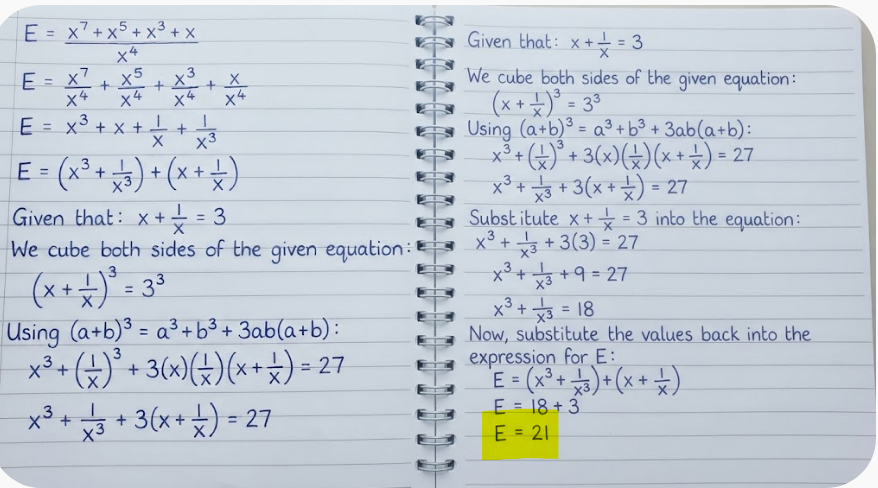 E = (x⁷ + x⁵ + x³ + x)/x⁴
E = x⁷/x⁴ + x⁵/x⁴ + x³/x⁴ + x/x⁴
E = x³ + x + 1/x + 1/x³
E = (x³ + 1/x³) + (x + 1/x)
Given that: x + 1/x = 3
We cube both sides of the given equation:
(x + 1/x)³ = 3³
Using (a+b)³ = a³ + b³ + 3ab(a+b):
x³ + (1/x)³ + 3(x)(1/x)(x + 1/x) = 27
x³ + 1/x³ + 3(x + 1/x) = 27
Given that: x + 1/x = 3
We cube both sides of the given equation:
(x + 1/x)³ = 3³
Using (a+b)³ = a³ + b³ + 3ab(a+b):
x³ + (1/x)³ + 3(x)(1/x)(x + 1/x) = 27
x³ + 1/x³ + 3(x + 1/x) = 27
Substitute x + 1/x = 3 into the equation:
x³ + 1/x³ + 3(3) = 27
x³ + 1/x³ + 9 = 27
x³ + 1/x³ = 18
Now, substitute the values back into the
expression for E:
E = (x³ + 1/x³) + (x + 1/x)
E = 18 + 3
E = 21